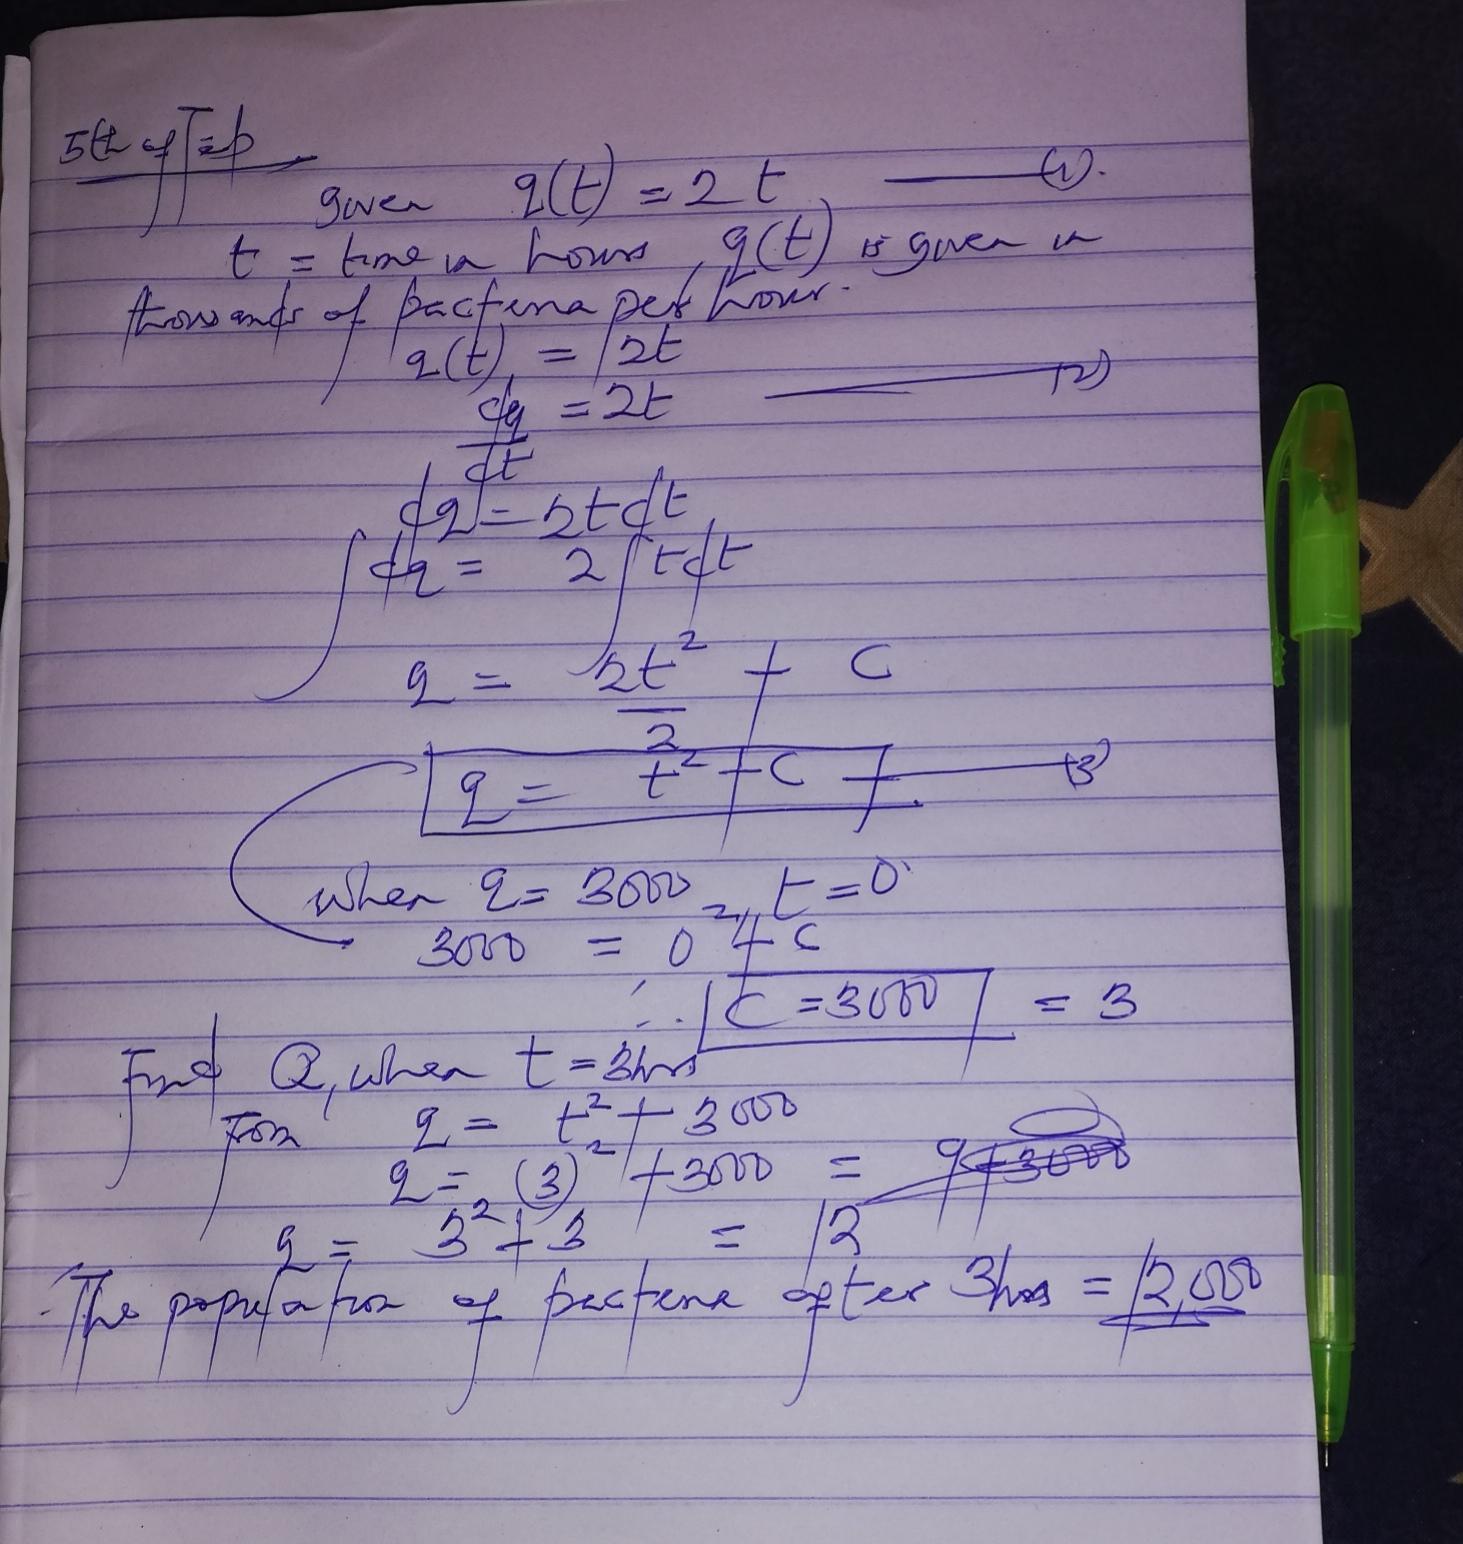 5th of Feb
given q(t) = 2t —— (1).
t = time in hours, q(t) is given in
thousands of bacteria per hour.
q(t) = 2t
dq/dt = 2t —— (2)
dq = 2t dt
∫dq = 2∫t dt
q = 2t²/2 + C
q = t² + C —— (3)
when q = 3000, t = 0
3000 = 0² + C
∴ C = 3000 = 3
Find Q, when t = 3hrs
From q = t² + 3000
q = (3)² + 3000 = 9 + 3000
q = 3² + 3 = 12
∴ The population of bacteria after 3hrs = 12,000